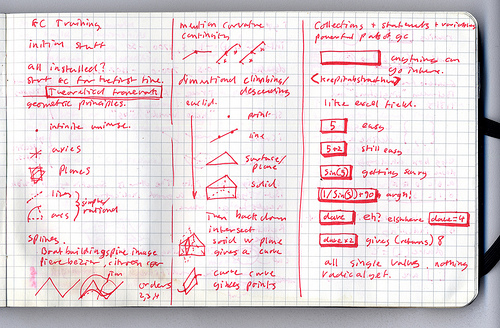 EC Training
initial stuff
all installed?
start EC for the first time.
Theoretical framework
geometric principles.
infinite universe.
axies
planes
lines
arcs
simple/
rational
splines.
Boat building spine image
Pierre bezier, citroen car
orders
2,3,4
mention curvature
continuity
dimentional climbing/
descending
euclid.
point
line
surface/
plane
solid
Turn back down
intersect
solid w plane
gives a curve
curve curve
gives points
Collections + statements + variables
powerful part of gc
anything can
go in here.
<keep it abstract>
like excel field.
5 easy
5+2 still easy
Sin(5) getting scary
(1/Sin(5))+90 aargh!
dave eh? elsewhere dave=4
dave x2 gives (returns) 8
all single values, nothing
radical yet.